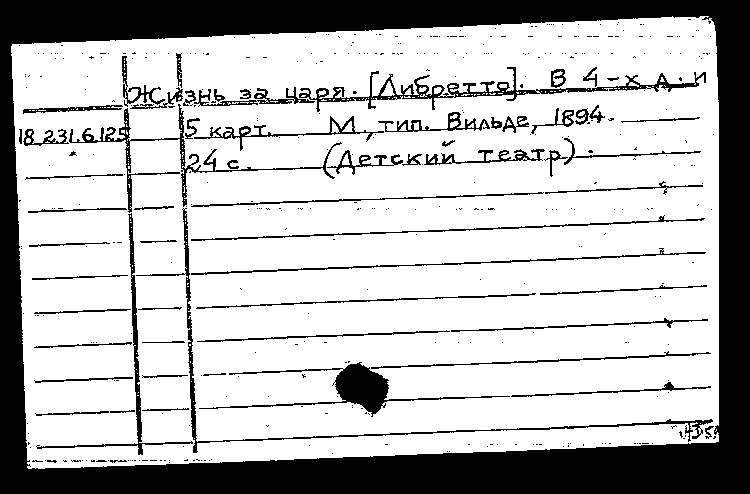 Жизнь за царя. [Либретто]. В 4-х д. и
18.231.6.125 5 карт. М., тип. Вильде, 1894.
24 с. (Детский театр).